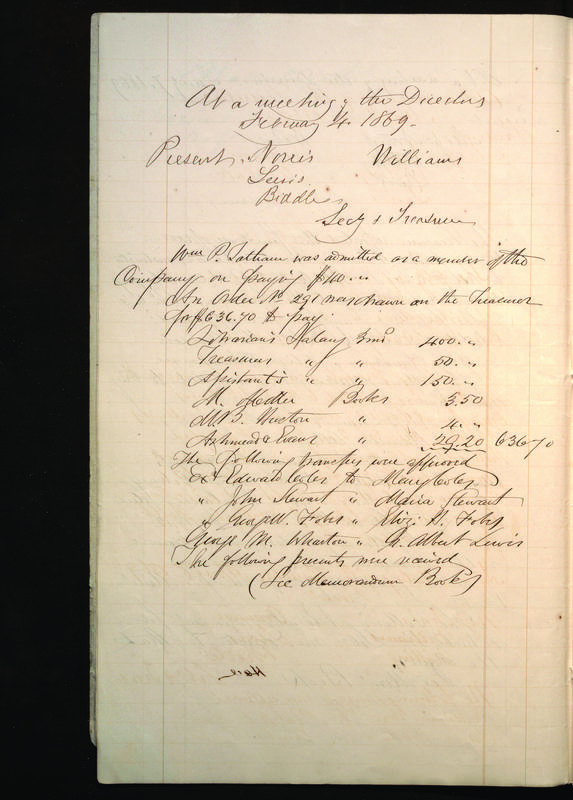 At a meeting of the Directors
February 4. 1869.
Present. Norris Williams
Lewis
Biddle
Secy & Treasurer
Wm P. Tatham was admitted as a member of the
Company on paying $40. "
An Order No 291 was drawn on the Treasurer
for $636.70 to pay
Librarian's Salary 3 mo 400. "
Treasurers " " 50. "
Assistant's " " 150. "
M. Books 3.50
M. B. " 4. "
Ashmead & Evans " 29.20 636 70
The following transfers were approved
Ex Edward Coles to Mary Coles
" John Stewart " Maria Stewart
" George W. Fobes " Eliz. H. Fobes
George M. Wharton " G. Albert Lewis
The following presents were received
(See Memorandum Book)